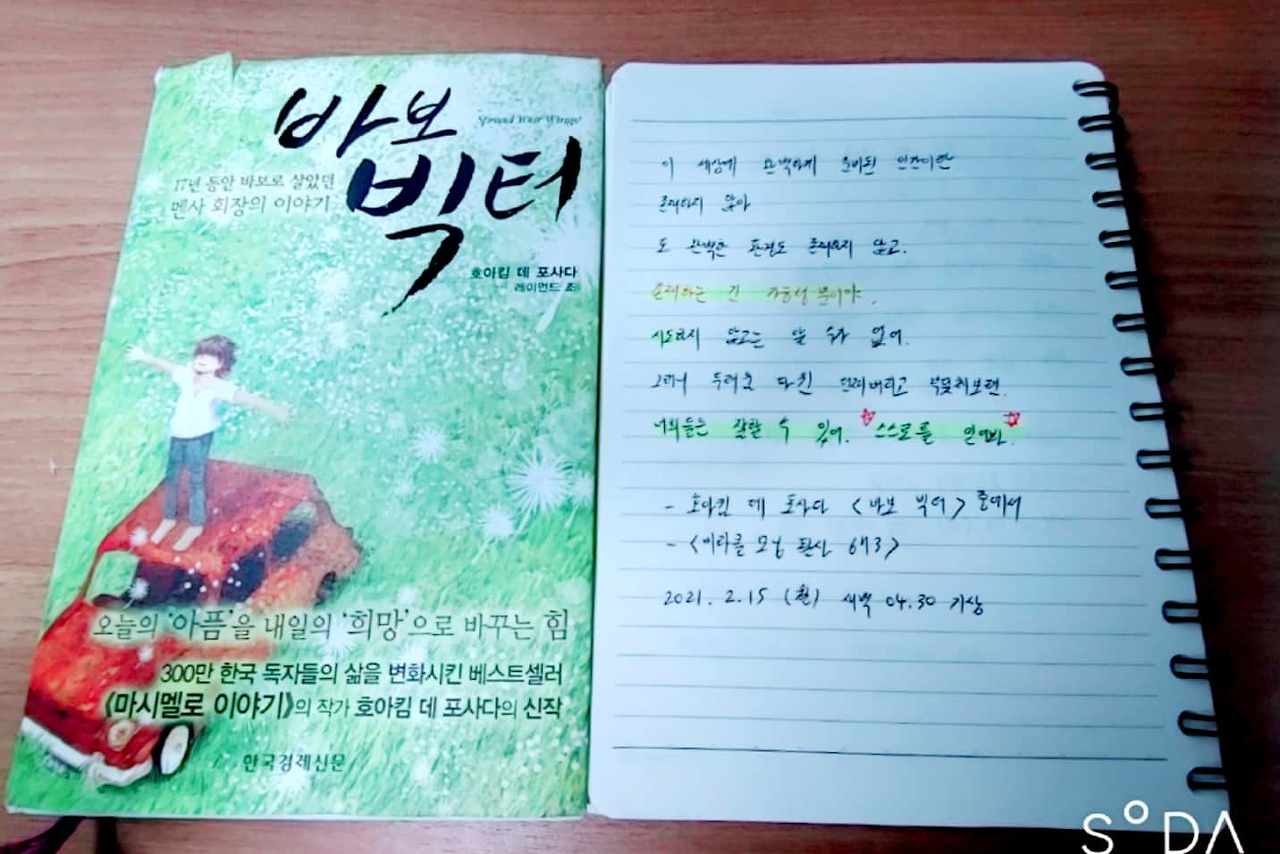 바보
빅터
17년 동안 바보로 살았던
멘사 회장의 이야기
호아킴 데 포사다
레이먼드 조
오늘의 '아픔'을 내일의 '희망'으로 바꾸는 힘
300만 한국 독자들의 삶을 변화시킨 베스트셀러
《마시멜로 이야기》의 작가 호아킴 데 포사다의 신작
한국경제신문
이 세상에 완벽하게 준비된 인간이란
존재하지 않아
또 완벽한 환경도 존재하지 않고.
존재하는 건 가능성 뿐이야.
시도하지 않고는 알 수가 없어.
그러니 두려움 따윈 던져버리고 부딪쳐보렴.
너희들은 잘할 수 있어. 스스로를 믿어봐.
- 호아킴 데 포사다 <바보 빅터> 중에서
- <미라클 모닝 필사 6기3>
2021. 2.15 (월) 새벽 04.30 기상
SODA